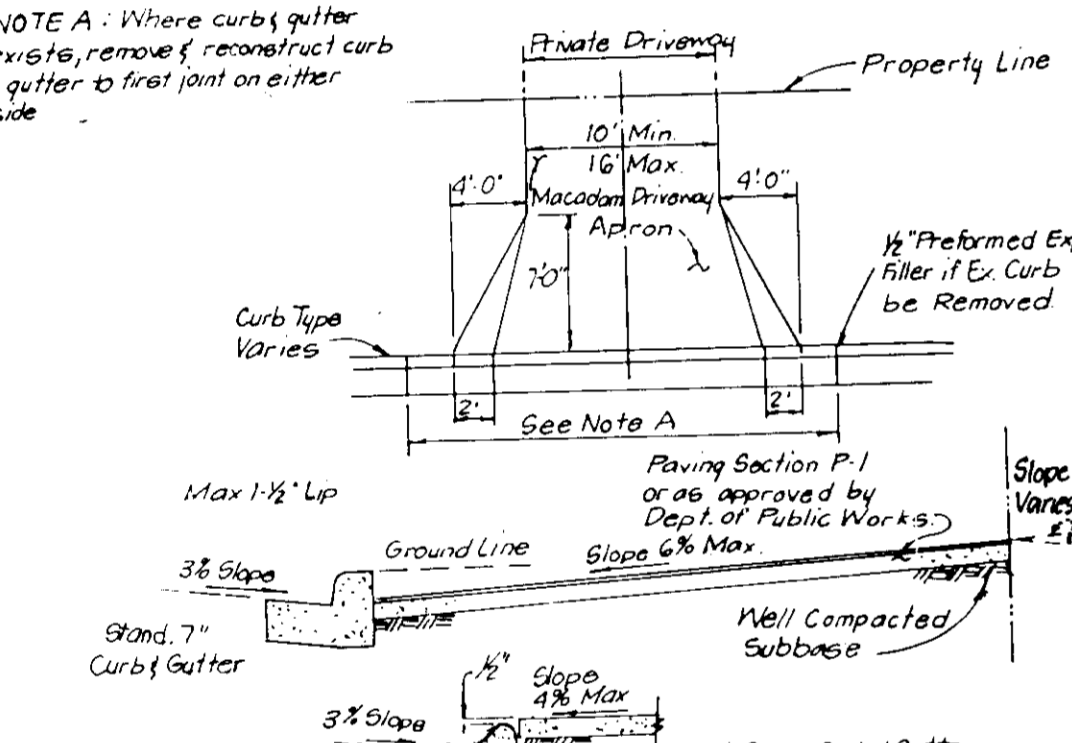 NOTE A: Where curb & gutter
exists, remove & reconstruct curb
gutter to first joint on either
side
Private Driveway
Property Line
10' Min.
16' Max.
4'-0"
4'-0"
Macadam Driveway
Apron
7'-0"
1/2" Preformed Ex
Filler if Ex. Curb
be Removed
Curb Type
Varies
2'
2'
See Note A
Paving Section P-1
or as approved by
Dept. of Public Works.
Slope
Varies
Max 1-1/2" Lip
Ground Line
Slope 6% Max.
3% Slope
Stand. 7"
Curb & Gutter
Well Compacted
Subbase
1/2"
Slope
4% Max
3% Slope